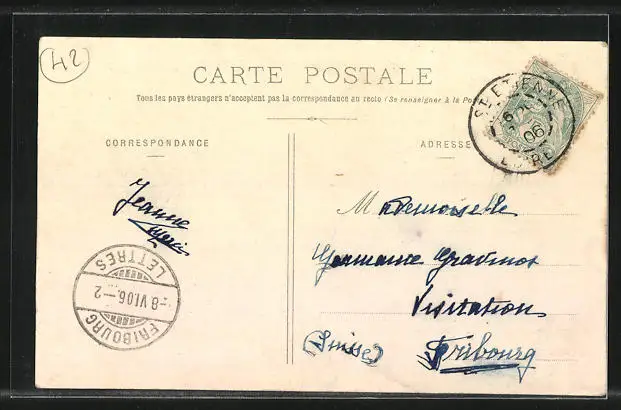 42
CARTE POSTALE
Tous les pays étrangers n'acceptent pas la correspondance au recto (Se renseigner à la Po
CORRESPONDANCE
ADRESSE
ST ETIENNE
06
LOIRE
Jeanne
Mademoiselle
Germaine
Visitation
(Suisse) Fribourg
FRIBOURG
-8 VI 06 - 2
LETTRES